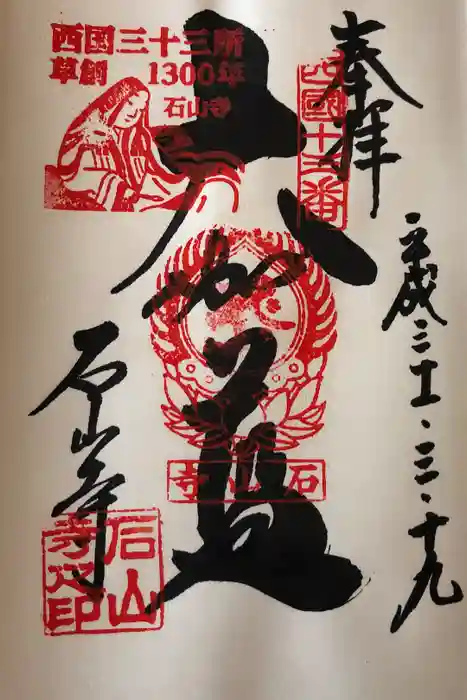 奉拝
西國十三番
平成三十一・三・十九
大伽藍
西国三十三所
草創 1300年
石山寺
石山寺
石山寺
石山寺之印